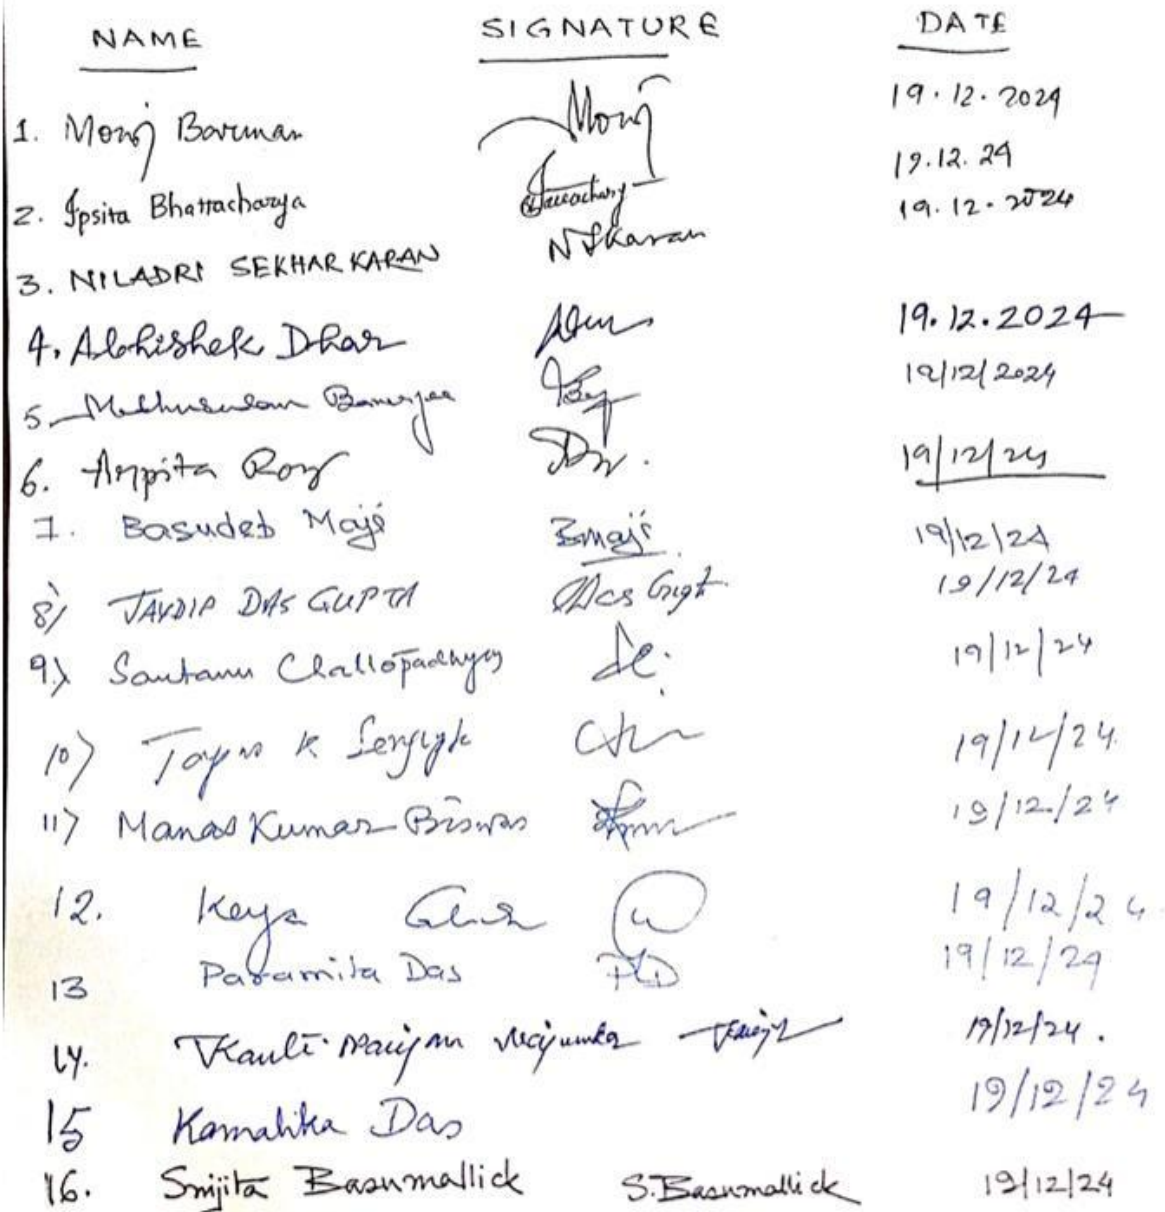 NAME SIGNATURE DATE
1. Monoj Barman Monoj 19.12.2024
2. Ipsita Bhattacharya 19.12.24
3. NILADRI SEKHAR KARAN NSKaran 19.12.2024
4. Abhishek Dhar 19.12.2024
5. Madhusudan Banerjee 19/12/2024
6. Arpita Roy 19/12/24
7. Basudeb Maji Bmaji 19/12/24
8) JAYDIP DAS GUPTA Das Gupta 19/12/24
9.) Santanu Chattopadhyay 19/12/24
10) K 19/12/24
11) Manas Kumar Biswas 19/12/24
12. Keya Ghosh 19/12/24
13 Paramita Das PD 19/12/24
14. 19/12/24.
15 Kamalika Das 19/12/24
16. Srijita Basumallick S.Basumallick 19/12/24